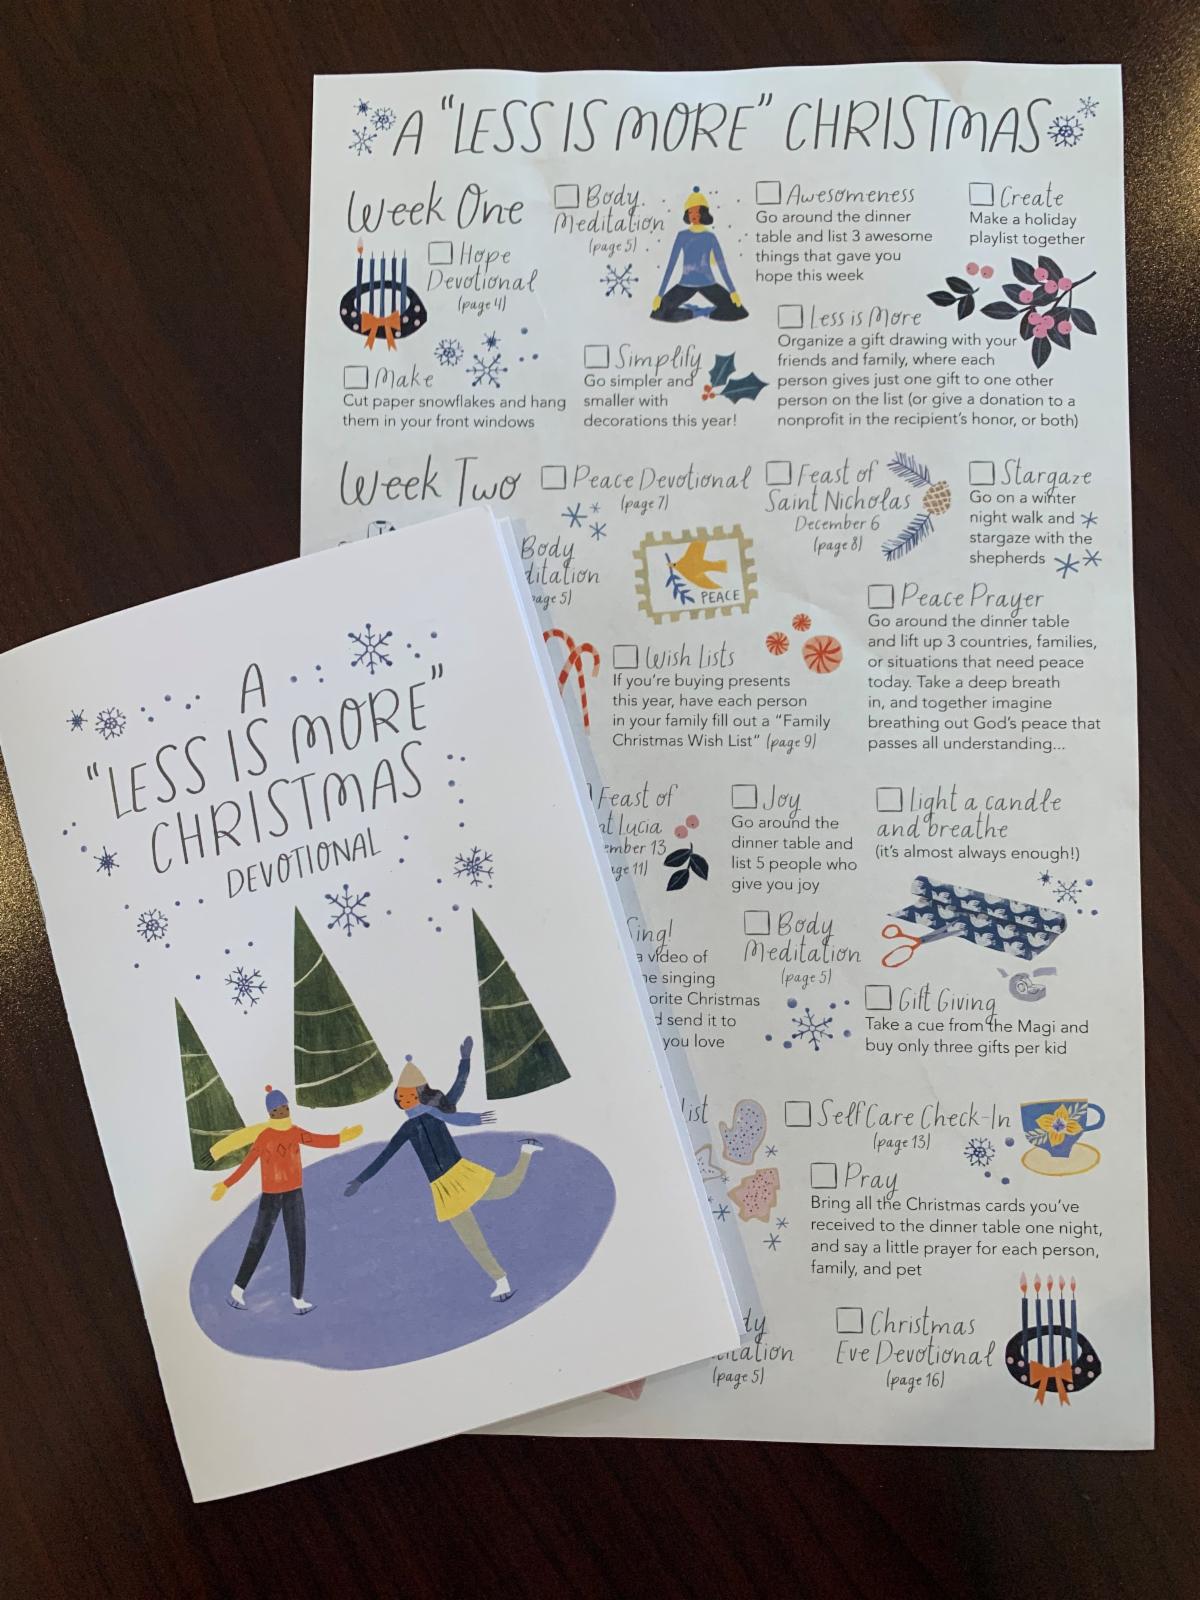 A "LESS IS MORE" CHRISTMAS
Week One
Hope
Devotional
(page 4)
Make
Cut paper snowflakes and hang
them in your front windows
Body
Meditation
(page 5)
Simplify
Go simpler and
smaller with
decorations this year!
Awesomeness
Go around the dinner
table and list 3 awesome
things that gave you
hope this week
Create
Make a holiday
playlist together
Less is More
Organize a gift drawing with your
friends and family, where each
person gives just one gift to one other
person on the list (or give a donation to a
nonprofit in the recipient's honor, or both)
Week Two
Peace Devotional
(page 7)
Body
ditation
age 5)
PEACE
Feast of
Saint Nicholas
December 6
(page 8)
Stargaze
Go on a winter
night walk and
stargaze with the
shepherds
Wish Lists
If you're buying presents
this year, have each person
in your family fill out a "Family
Christmas Wish List" (page 9)
Peace Prayer
Go around the dinner table
and lift up 3 countries, families,
or situations that need peace
today. Take a deep breath
in, and together imagine
breathing out God's peace that
passes all understanding...
Feast of
nt Lucia
ember 13
ge 11)
Joy
Go around the
dinner table and
list 5 people who
give you joy
Light a candle
and breathe
(it's almost always enough!)
ing!
a video of
ne singing
orite Christmas
d send it to
you love
Body
Meditation
(page 5)
Gift Giving
Take a cue from the Magi and
buy only three gifts per kid
list
Self Care Check-In
(page 13)
Pray
Bring all the Christmas cards you've
received to the dinner table one night,
and say a little prayer for each person,
family, and pet
dy
itation
(page 5)
Christmas
Eve Devotional
(page 16)
A
"LESS IS MORE"
CHRISTMAS
DEVOTIONAL